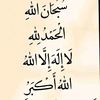 سُبْحَانَ اللهِ
الحَمْدُ لِلهِ
لَا إِلَهَ إِلَّا اللهُ
اللهُ أَكْبَرُ